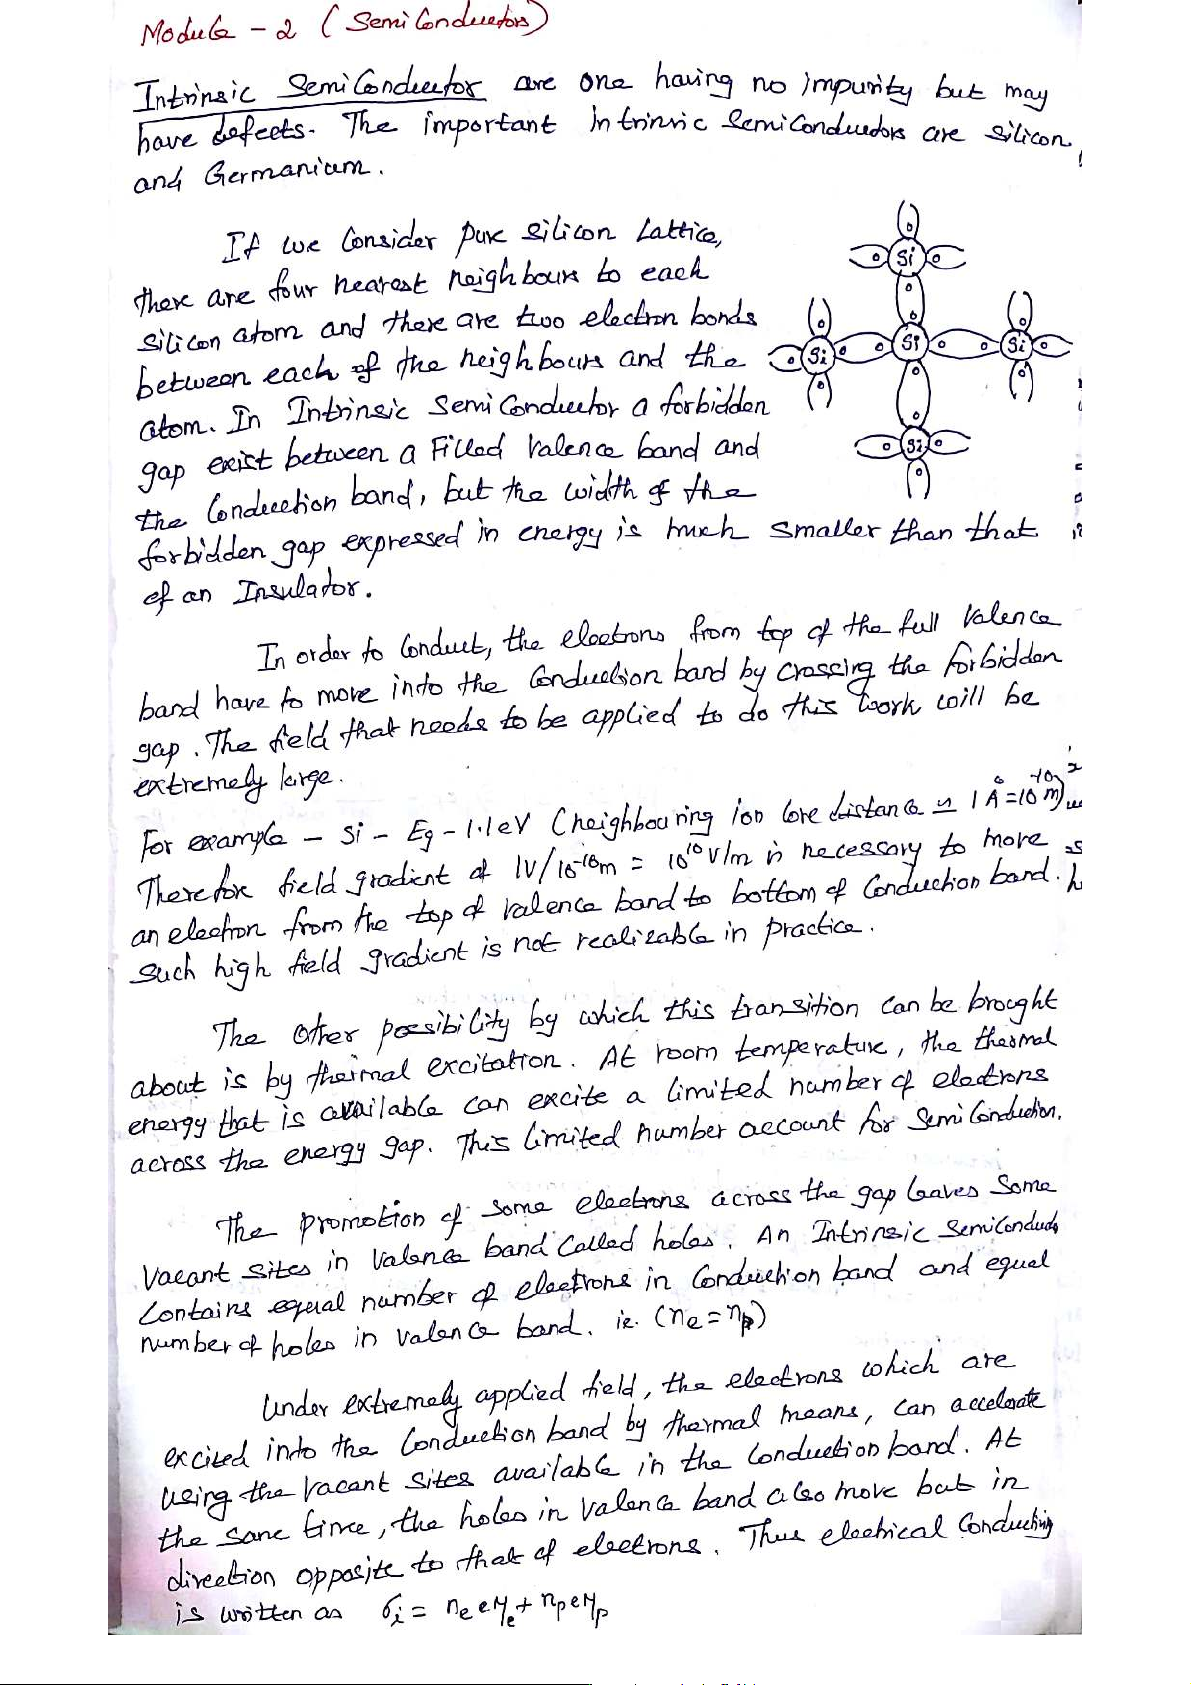 Module - 2 ( Semi Conductors)
Intrinsic Semi Conductor are one having no impurity but may
have defects. The important intrinsic Semi Conductors are silicon
and Germanium.
If we Consider pure silicon Lattice,
there are four nearest neighbours to each
silicon atom and there are two electron bonds
between each of the neighbours and the
atom. In Intrinsic Semi Conductor a forbidden
gap exist between a Filled valence band and
the Conduction band, but the width of the
forbidden gap expressed in energy is much smaller than that
of an Insulator.
Si
Si
Si
Si
Si
In order to Conduct, the electrons from top of the full valence
band have to move into the Conduction band by crossing the forbidden
gap. The field that needs to be applied to do this work will be
extremely large.
For example - Si - Eg - 1.1eV (neighbouring ion core distance ≃ 1 Å = 10⁻¹⁰ m)
Therefore field gradient of 1V/10⁻¹⁰m = 10¹⁰ V/m is necessary to move
an electron from the top of valence band to bottom of Conduction band.
Such high field gradient is not realizable in practice.
The other possibility by which this transition can be brought
about is by thermal excitation. At room temperature, the thermal
energy that is available can excite a limited number of electrons
across the energy gap. This limited number account for Semi Conduction.
The promotion of some electrons across the gap leaves Some
vacant sites in valence band called holes. An Intrinsic Semiconducto
Contains equal number of electrons in Conduction band and equal
number of holes in valence band. ie. (nₑ = nₚ)
Under extremely applied field, the electrons which are
excited into the Conduction band by thermal means, can accelerate
using the vacant sites available in the Conduction band. At
the same time, the holes in valence band also move but in
direction opposite to that of electrons. Thus electrical Conducting
is written as σᵢ = nₑ e μₑ + nₚ e μₚ